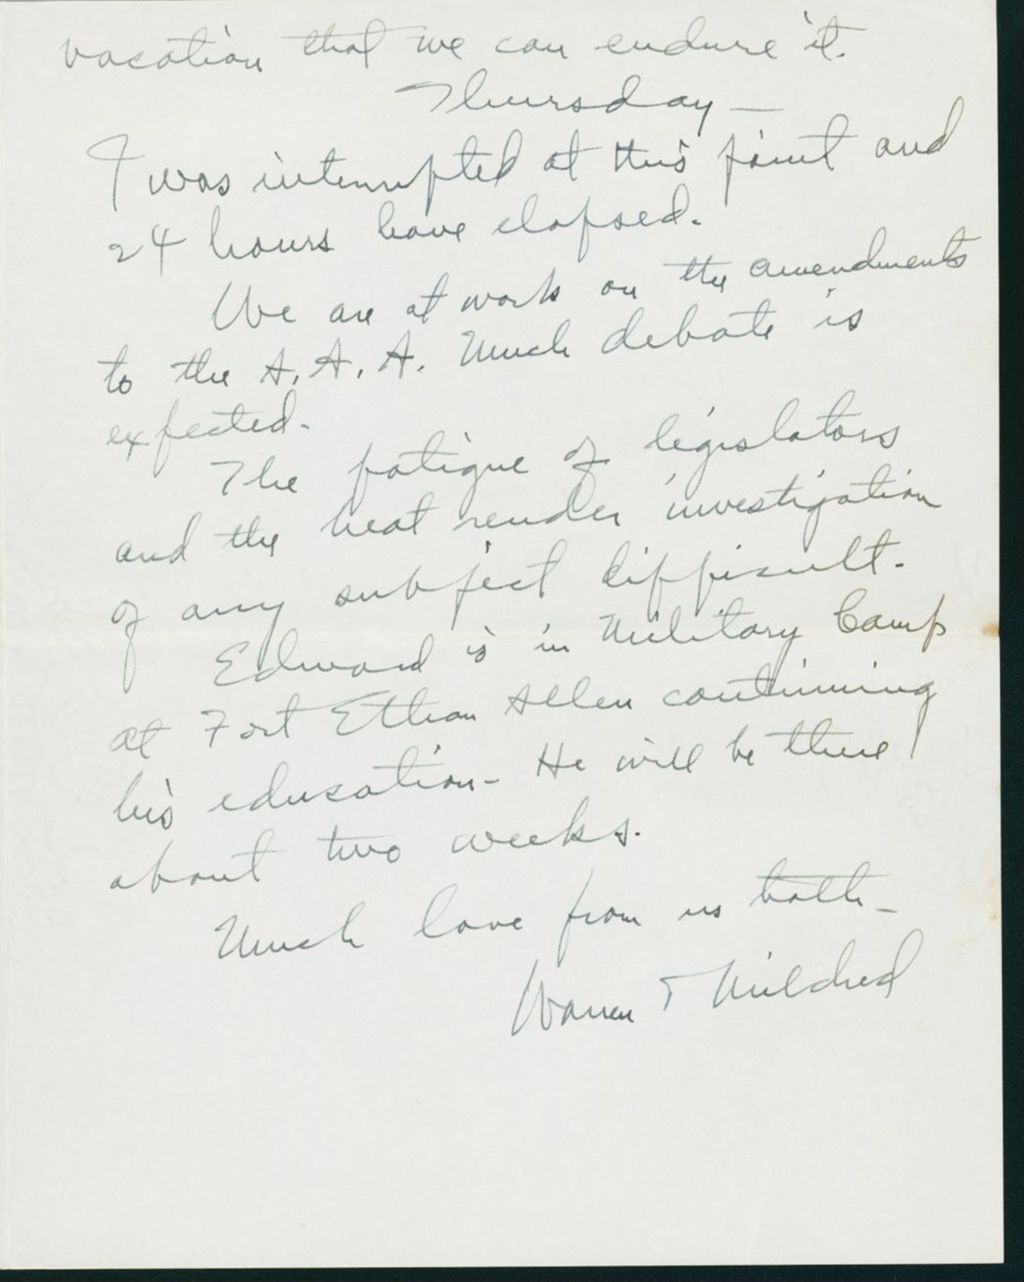 vacation that we can endure it.
Thursday —
I was interrupted at this point and
24 hours have elapsed.
We are at work on the amendments
to the A. A. A. Much debate is
expected.
The fatigue of legislators
and the heat render investigation
of any subject difficult.
Edward is in Military Camp
at Fort Ethan Allen continuing
his education – He will be there
about two weeks.
Much love from us both –
Warren & Mildred